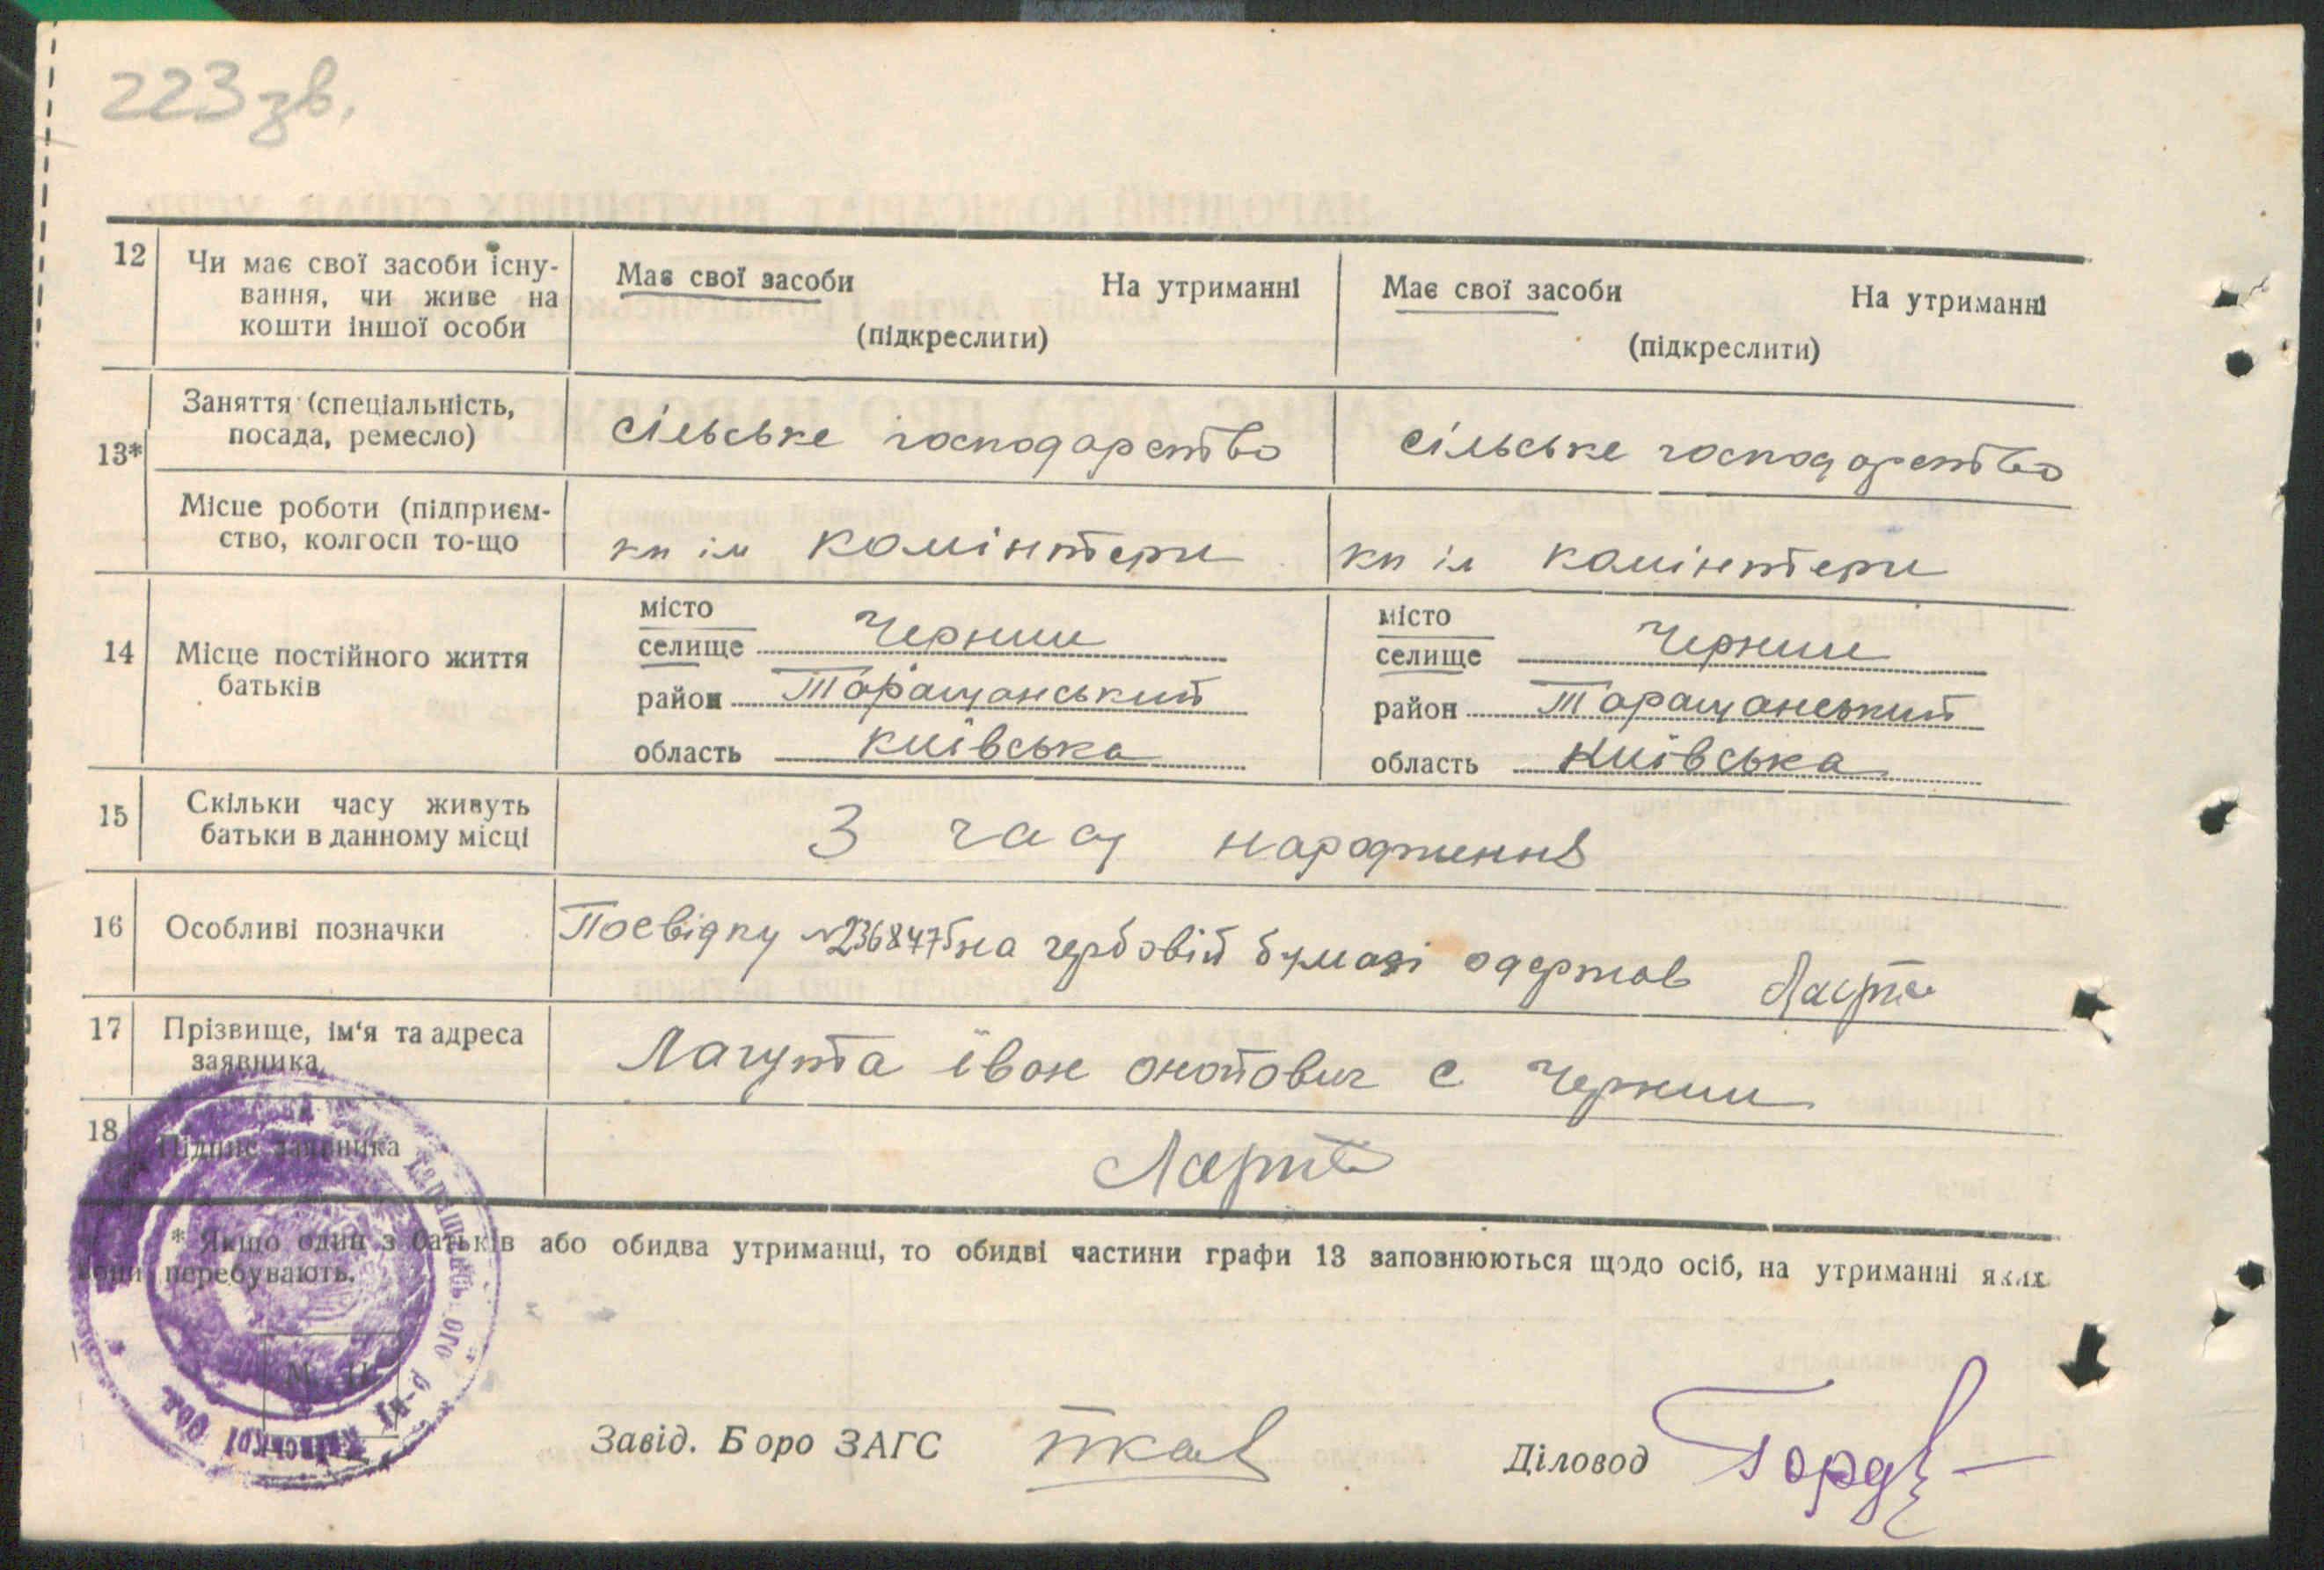 223 зв.
12 Чи має свої засоби існу-
вання, чи живе на
кошти іншої особи
Має свої засоби На утриманні
(підкреслити)
Має свої засоби На утриманні
(підкреслити)
13*
Заняття (спеціальність,
посада, ремесло)
сільське господарство
сільське господарство
Місце роботи (підприєм-
ство, колгосп то-що
кп ім комінтерн
кп ім комінтерн
14 Місце постійного життя
батьків
місто
селище Чернин
район Таращанський
область київська
місто
селище Чернин
район Таращанський
область київська
15 Скільки часу живуть
батьки в данному місці
З часу народження
16 Особливі позначки
Посвідку №236847 на гербовій бумазі одержав
17 Прізвище, ім'я та адреса
заявника
Лагута іван с Чернин
18 Підпис заявника
* Якщо один з батьків або обидва утриманці, то обидві частини графи 13 заповнюються щодо осіб, на утриманні яких
вони перебувають.
М. П.
р-ну Київської Обл.
Завід. Боро ЗАГС
Діловод